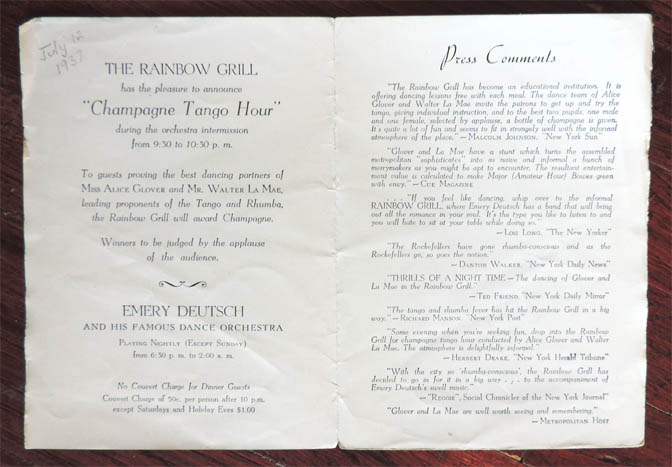 July 12
1937
THE RAINBOW GRILL
has the pleasure to announce
"Champagne Tango Hour"
during the orchestra intermission
from 9:30 to 10:30 p. m.
To guests proving the best dancing partners of
MISS ALICE GLOVER and MR. WALTER LA MAE,
leading proponents of the Tango and Rhumba,
the Rainbow Grill will award Champagne.
Winners to be judged by the applause
of the audience.
EMERY DEUTSCH
AND HIS FAMOUS DANCE ORCHESTRA
PLAYING NIGHTLY (EXCEPT SUNDAY)
from 6:30 p. m. to 2:00 a. m.
No Couvert Charge for Dinner Guests
Couvert Charge of 50c. per person after 10 p.m.
except Saturdays and Holiday Eves $1.00
Press Comments
"The Rainbow Grill has become an educational institution. It is
offering dancing lessons free with each meal. The dance team of Alice
Glover and Walter La Mae invite the patrons to get up and try the
tango, giving individual instruction, and to the best two pupils, one male
and one female, selected by applause, a bottle of champagne is given.
It's quite a lot of fun and seems to fit in strangely well with the informal
atmosphere of the place." — MALCOLM JOHNSON, "New York Sun"
"Glover and La Mae have a stunt which turns the assembled
metropolitan "sophisticates" into as naive and informal a bunch of
merrymakers as you might be apt to encounter. The resultant entertain-
ment value is calculated to make Major (Amateur Hour) Bowes green
with envy." — CUE MAGAZINE
. . . "If you feel like dancing, whip over to the informal
RAINBOW GRILL, where Emery Deutsch has a band that will bring
out all the romance in your soul. It's the type you like to listen to and
you will hate to sit at your table while doing so."
— LOIS LONG, "The New Yorker"
"The Rockefellers have gone rhumba-conscious and as the
Rockefellers go, so goes the nation."
— DANTON WALKER, "New York Daily News"
"THRILLS OF A NIGHT TIME — The dancing of Glover and
La Mae in the Rainbow Grill."
— TED FRIEND, "New York Daily Mirror"
"The tango and rhumba fever has hit the Rainbow Grill in a big
way." — RICHARD MANSON, "New York Post"
"Some evening when you're seeking fun, drop into the Rainbow
Grill for champagne tango hour conducted by Alice Glover and Walter
La Mae. The atmosphere is delightfully informal."
— HERBERT DRAKE, "New York Herald Tribune"
"With the city so 'rhumba-conscious', the Rainbow Grill has
decided to go in for it in a big way . . . to the accompaniment of
Emery Deutsch's swell music."
— "REGGIE", Social Chronicler of the New York Journal"
"Glover and La Mae are well worth seeing and remembering."
— METROPOLITAN HOST